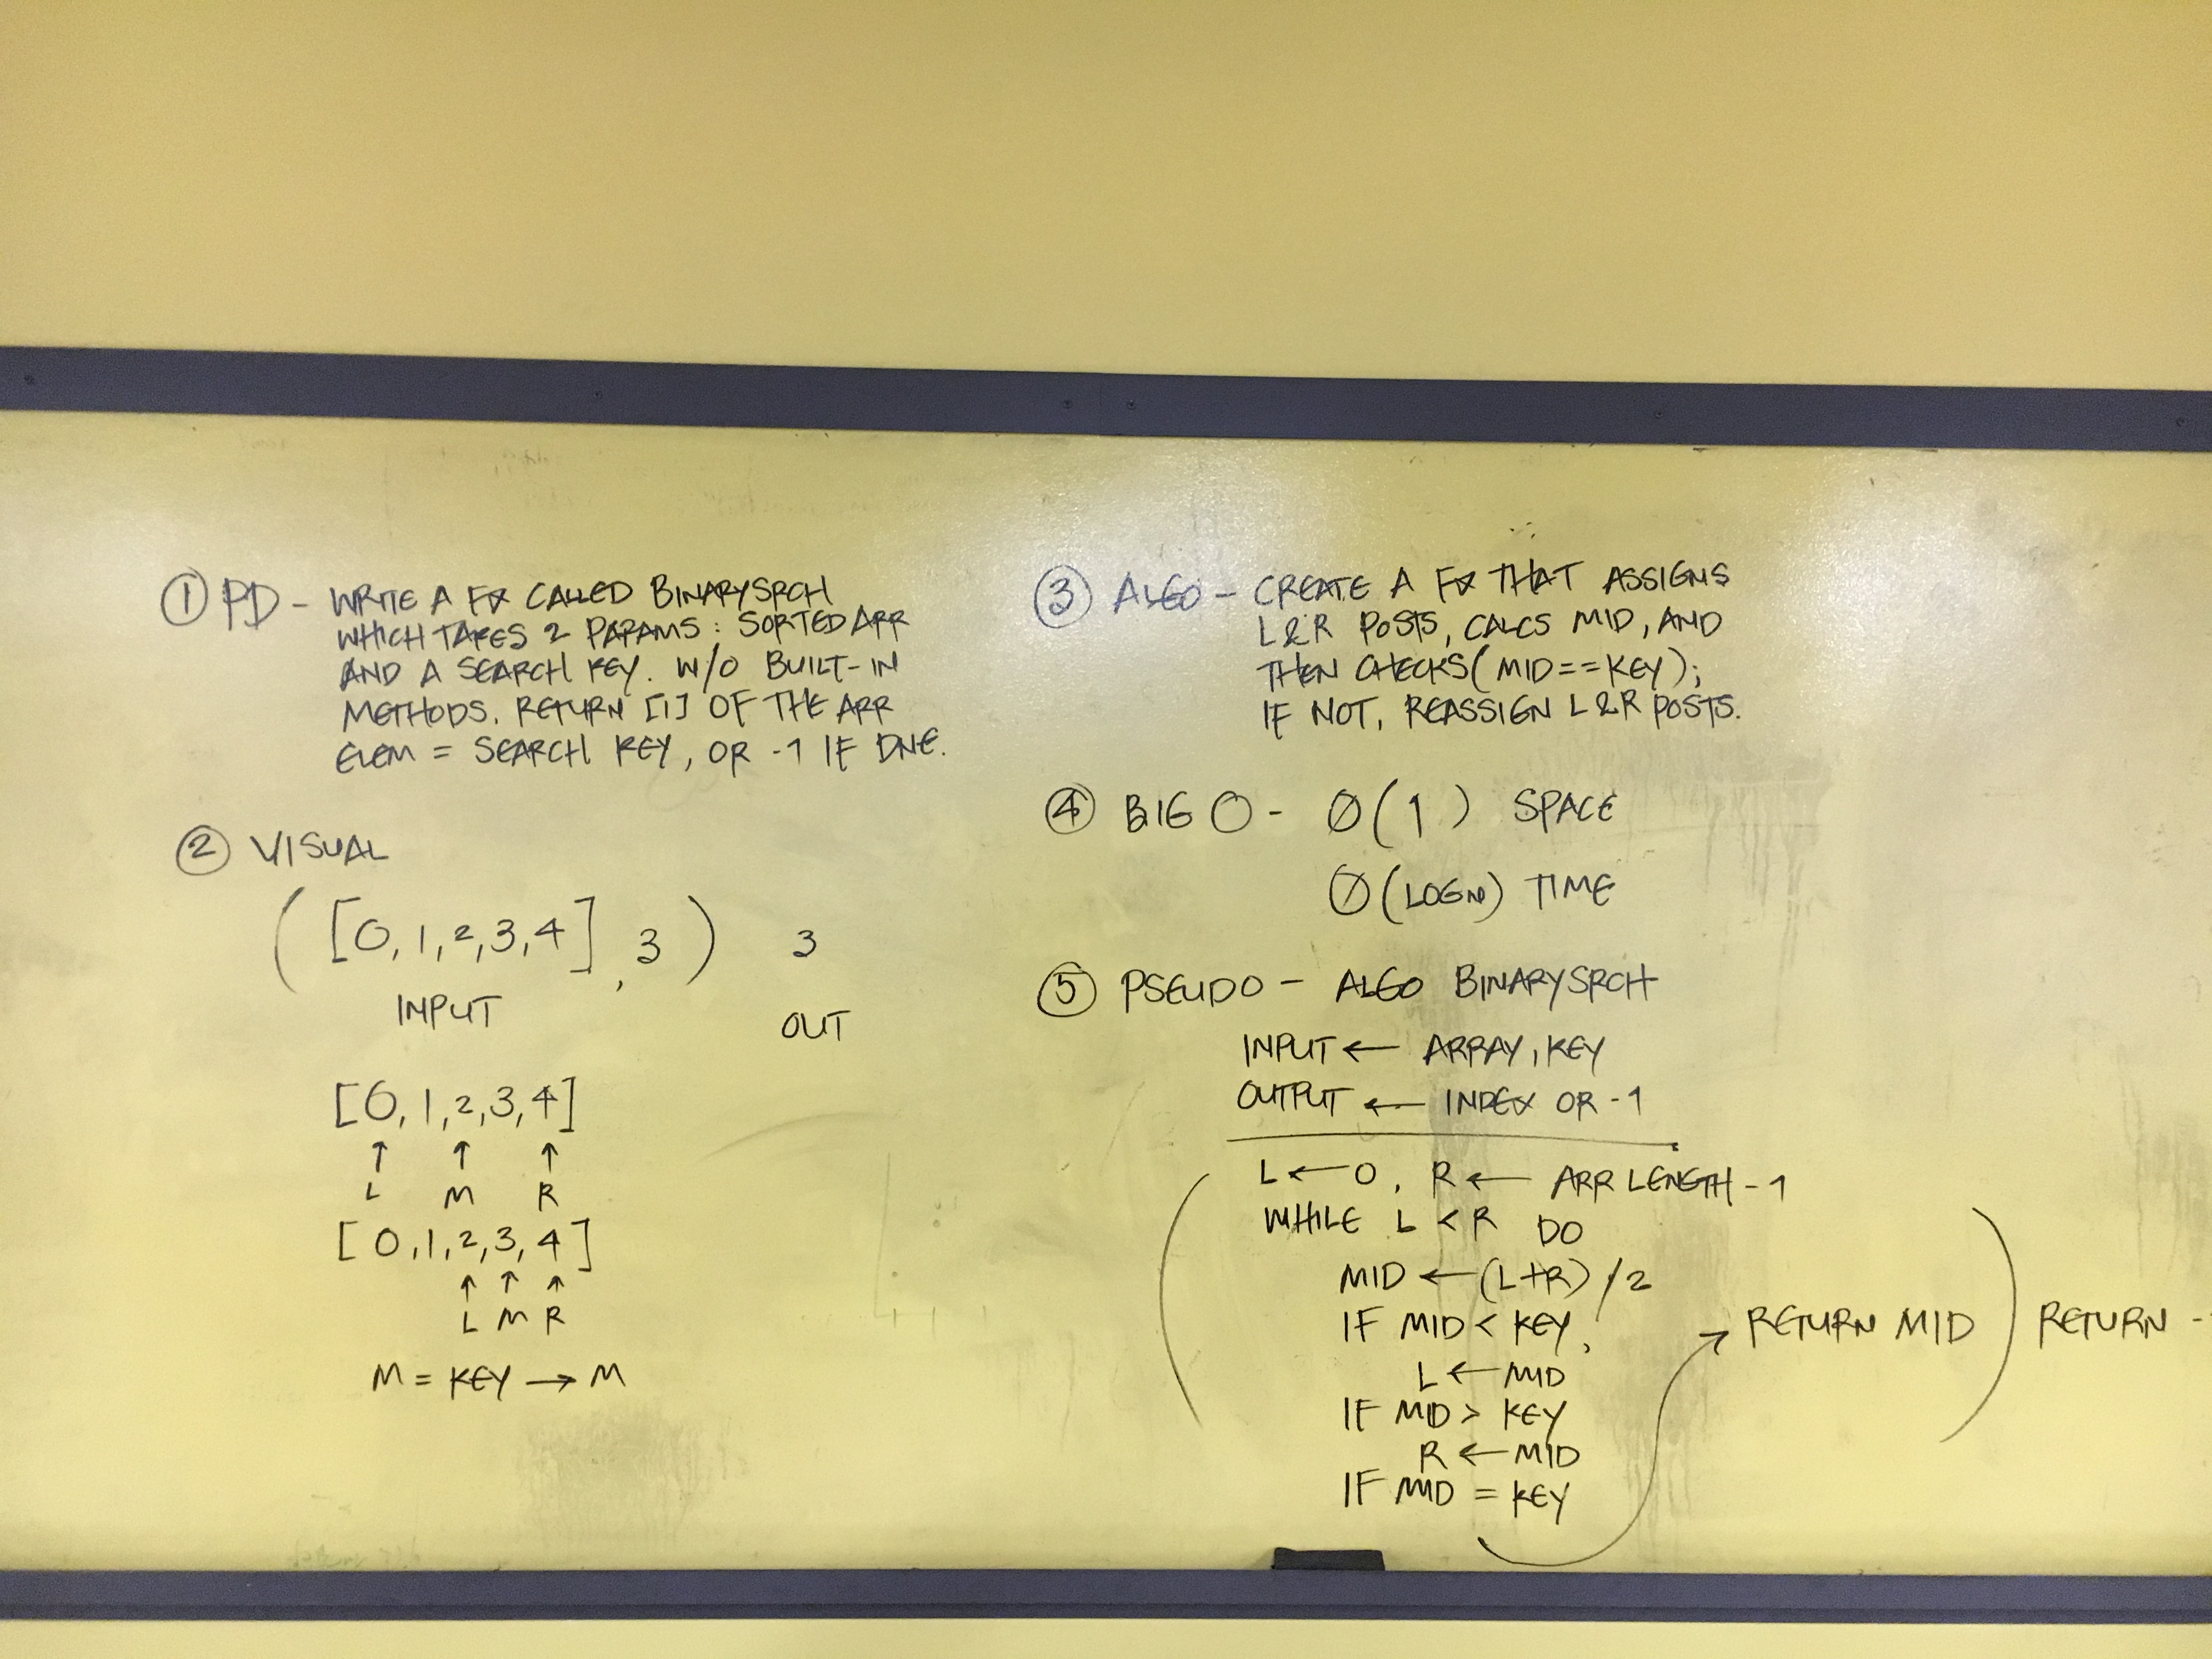 ① PD - WRITE A FX CALLED BINARYSRCH
WHICH TAKES 2 PARAMS: SORTED ARR
AND A SEARCH KEY. W/O BUILT-IN
METHODS. RETURN [i] OF THE ARR
ELEM = SEARCH KEY, OR -1 IF DNE.
② VISUAL
([0,1,2,3,4], 3) 3
INPUT OUT
[0,1,2,3,4]
↑ ↑ ↑
L M R
[0,1,2,3,4]
↑ ↑ ↑
L M R
M = KEY → M
③ ALGO - CREATE A FX THAT ASSIGNS
L&R POSTS, CALCS MID, AND
THEN CHECKS(MID==KEY);
IF NOT, REASSIGN L&R POSTS.
④ BIG O - O(1) SPACE
O(LOGN) TIME
⑤ PSEUDO - ALGO BINARYSRCH
INPUT ← ARRAY, KEY
OUTPUT ← INDEX OR -1
L ← 0, R ← ARR LENGTH - 1
WHILE L < R DO
MID ← (L+R)/2
IF MID < KEY,
L ← MID
IF MID > KEY
R ← MID
IF MID = KEY
→ RETURN MID
RETURN -